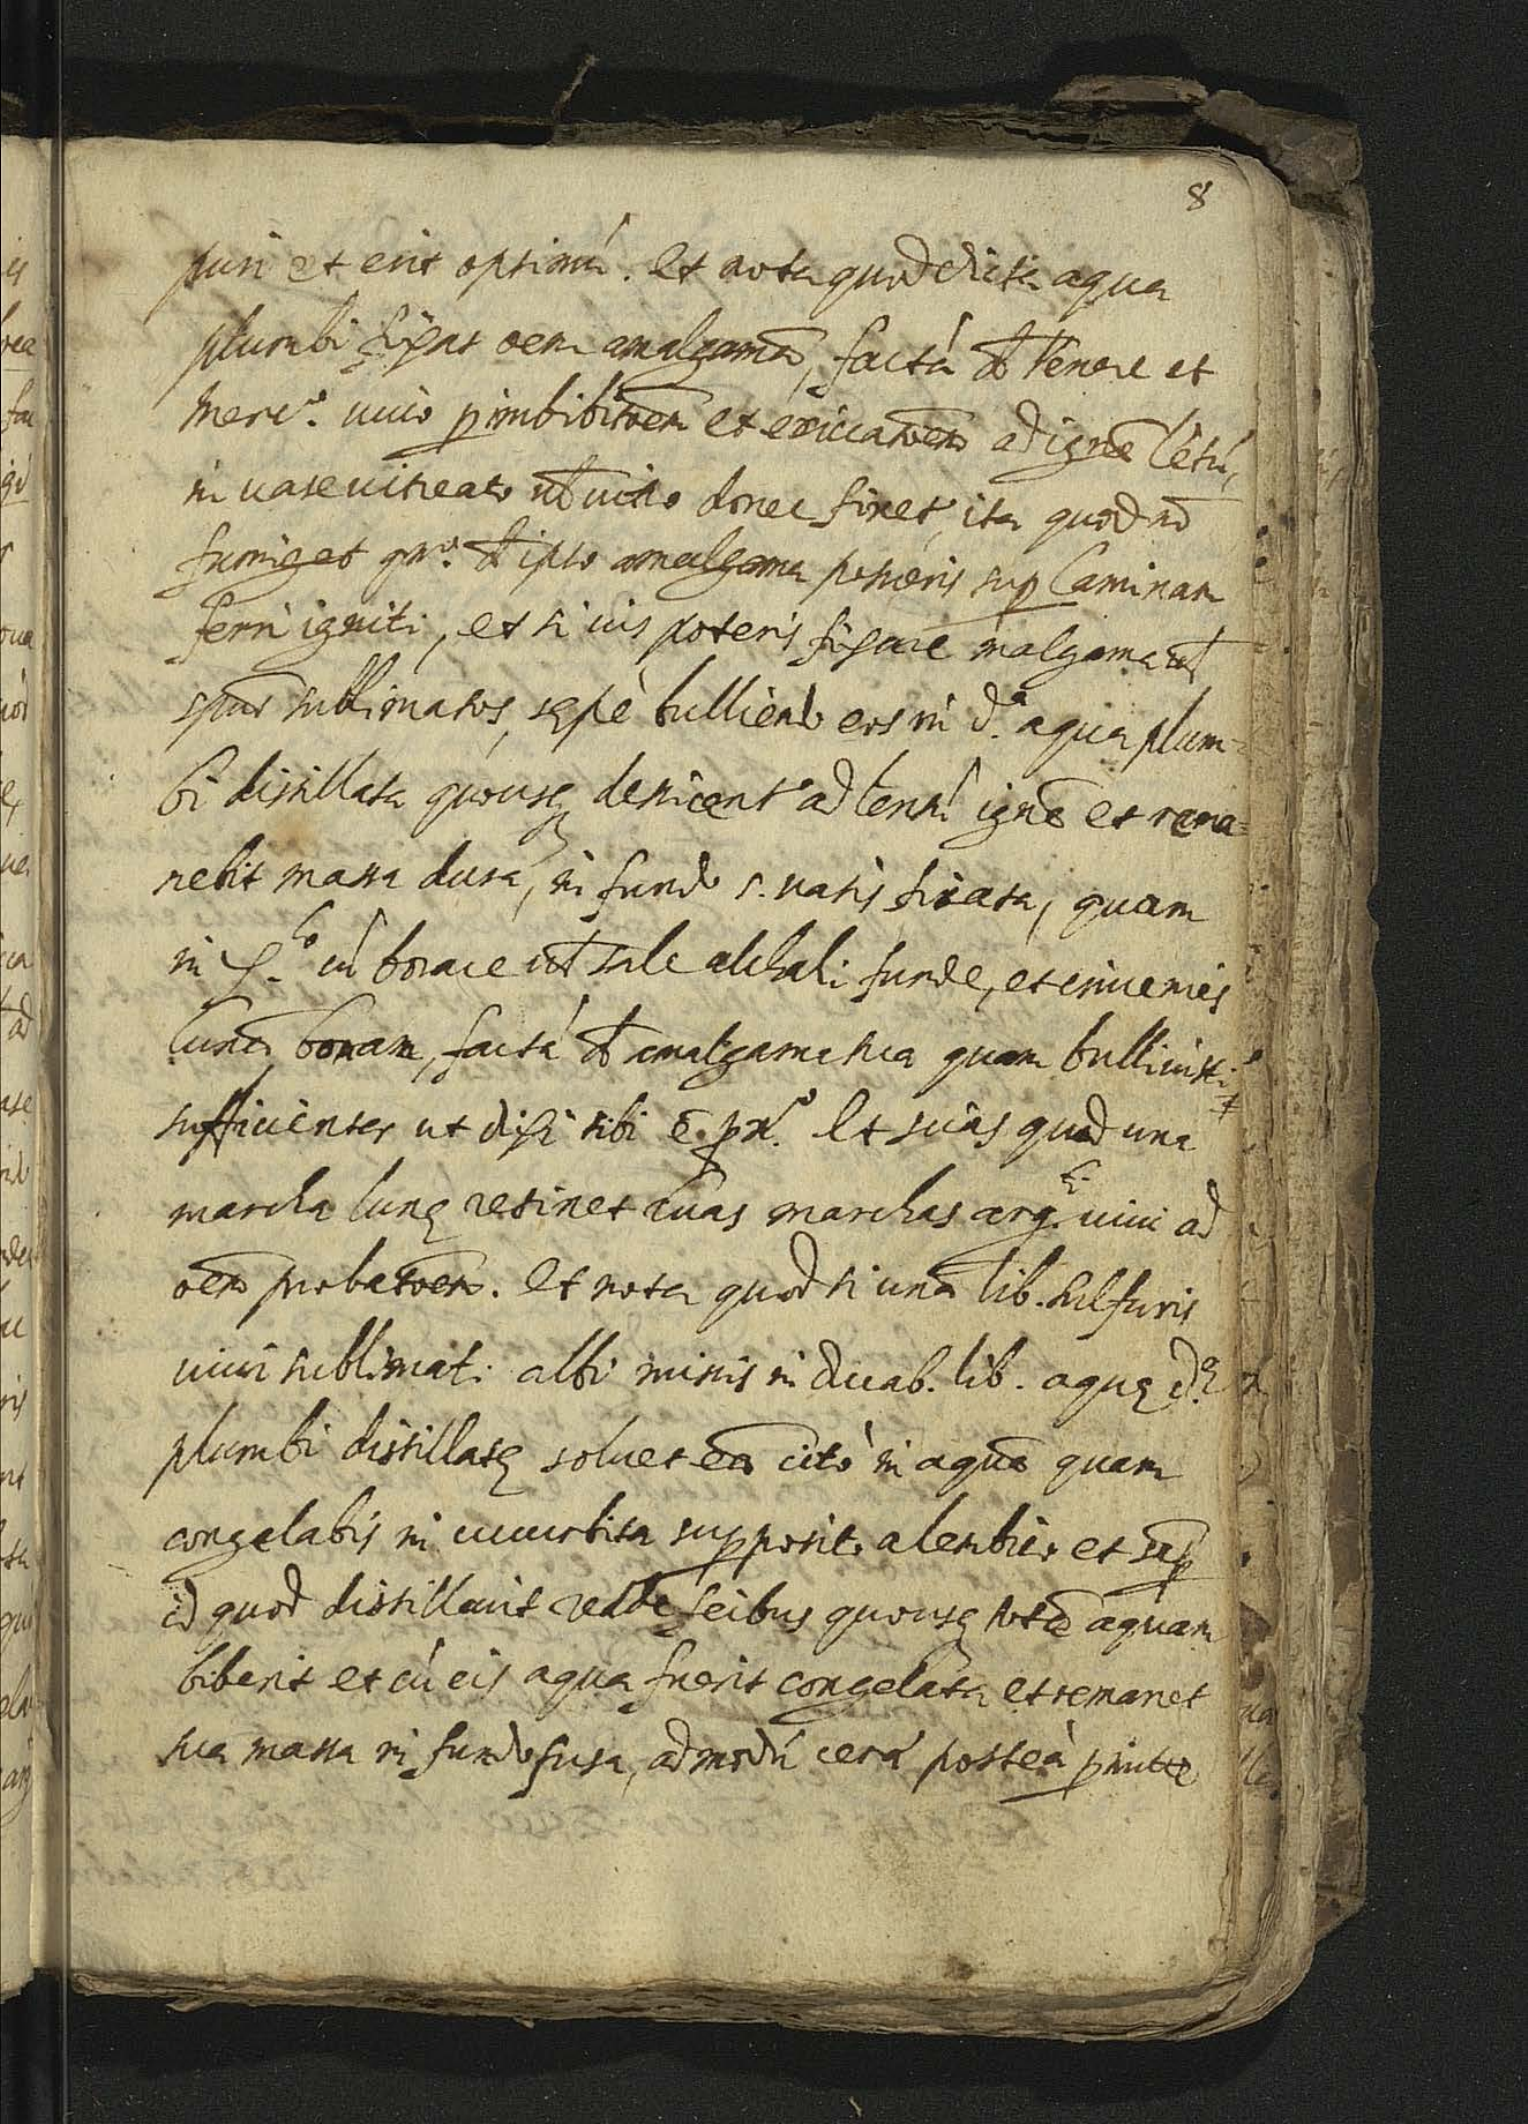 8
puri et erit optimú. Et nota quod dicta aqua
plumbi figat oem amalgama, factá d Venere et
Merc.º uiuo p imbibitoem et exiccatoem ad igne létú,
in uase uitreato ut uitro donec fixet, ita quod nō
fumiget qn.º d ipso amalgama posueris sup laminam
ferri igniti, et si uis poteris figare malgama ut
spus sublimatos, sępè bulliendo eos in d.ª aqua plum-
bi distillata quousq desiccent ad lentú igne et rema=
nebit massa dura, in fundo s. uasis fixata, quam
in cú borace ut sale alchali funde, et inuenies
Luna bonam, factá d amalgama sua quam bulliuisti
sufficienter ut dixi tibi Et scias quod una
marcha lunę retinet duas marchas arg.ti uiui ad
oem probatoem. Et nota quod si una lib. sulfuris
uiui sublimati albi misis in duab. lib. aquę d.ę
plumbi distillatę soluet ea citò in aqua quam
congelabis in cucurbita supposito alembico et sup
id quod distillauit redde fecibus quousq tota aquam
biberit et cú eis aqua fuerit congelata et remanet
sua massa in fundo fusa, ad modú cera posteà pmitte